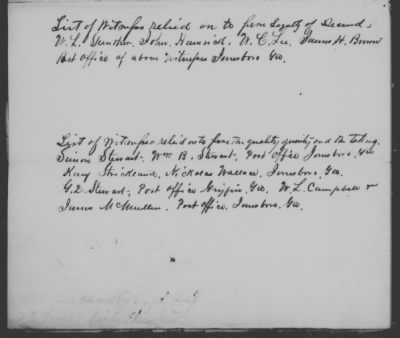 List of Witnesses relied on to prove Loyalty of Deceased.
W. L. John. W. C. Lee, James H. Brown
Post office of above Witnesses Jonesboro Geo.
List of Witnesses relied on to prove the quality, quantity and the taking.
Simon Stewart. Wm B. Stewart. Post Office Jonesboro, Geo
Kay Strickland, Nicholas Wallace, Jonesboro, Geo.
G. D. Stewart, Post Office Griffin, Geo. W. L. Campbell &
James McMullen. Post Office. Jonesboro, Geo.